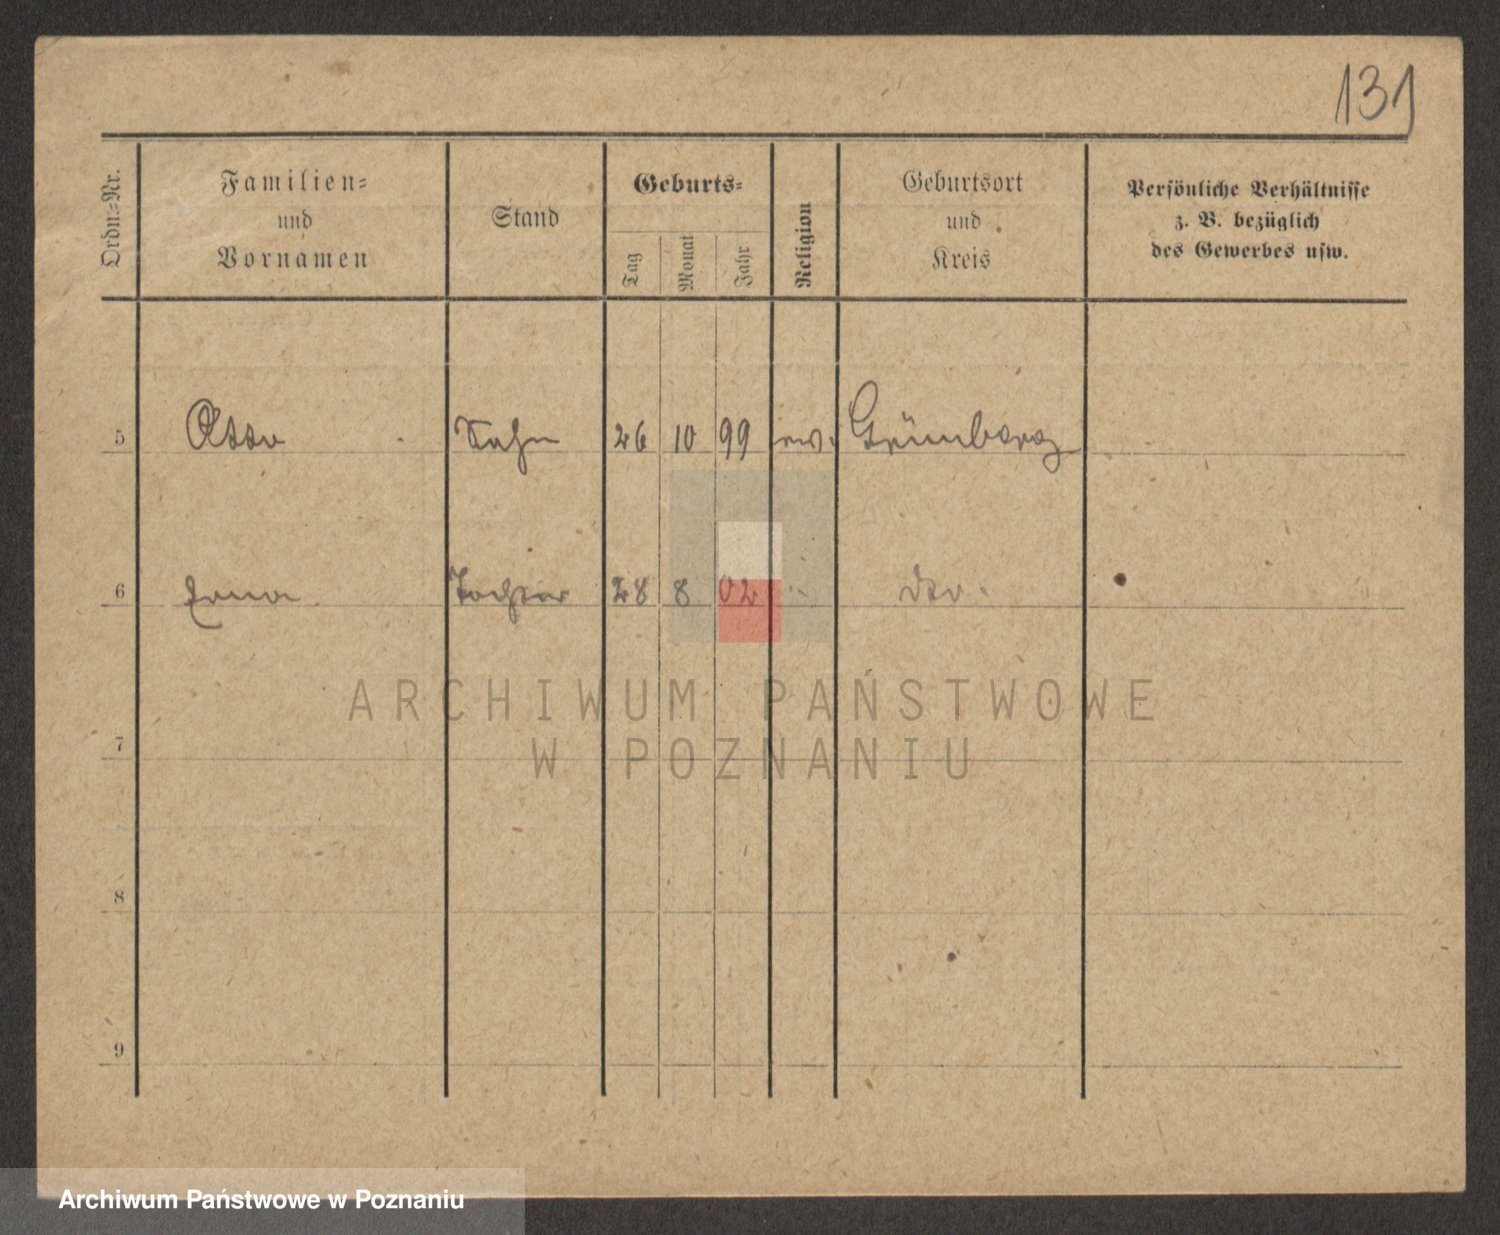 131
Ordn.-Nr.
Familien-
und
Vornamen
Stand
Geburts-
Tag
Monat
Jahr
Religion
Geburtsort
und
Kreis
Persönliche Verhältnisse
z. B. bezüglich
des Gewerbes usw.
5 Otto Sohn 26 10 99 ev. Grünberg
6 Erna Tochter 28 8 02 " dto.
7
8
9
ARCHIWUM PAŃSTWOWE
W POZNANIU
Archiwum Państwowe w Poznaniu